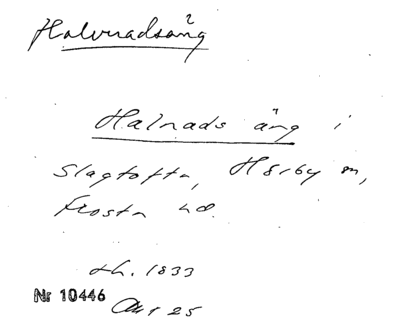 Halvnadsäng
Halnads äng i
Slagtofta, Hörby sn,
Frosta hd.
th. 1833
Nr 10446
Akt 25